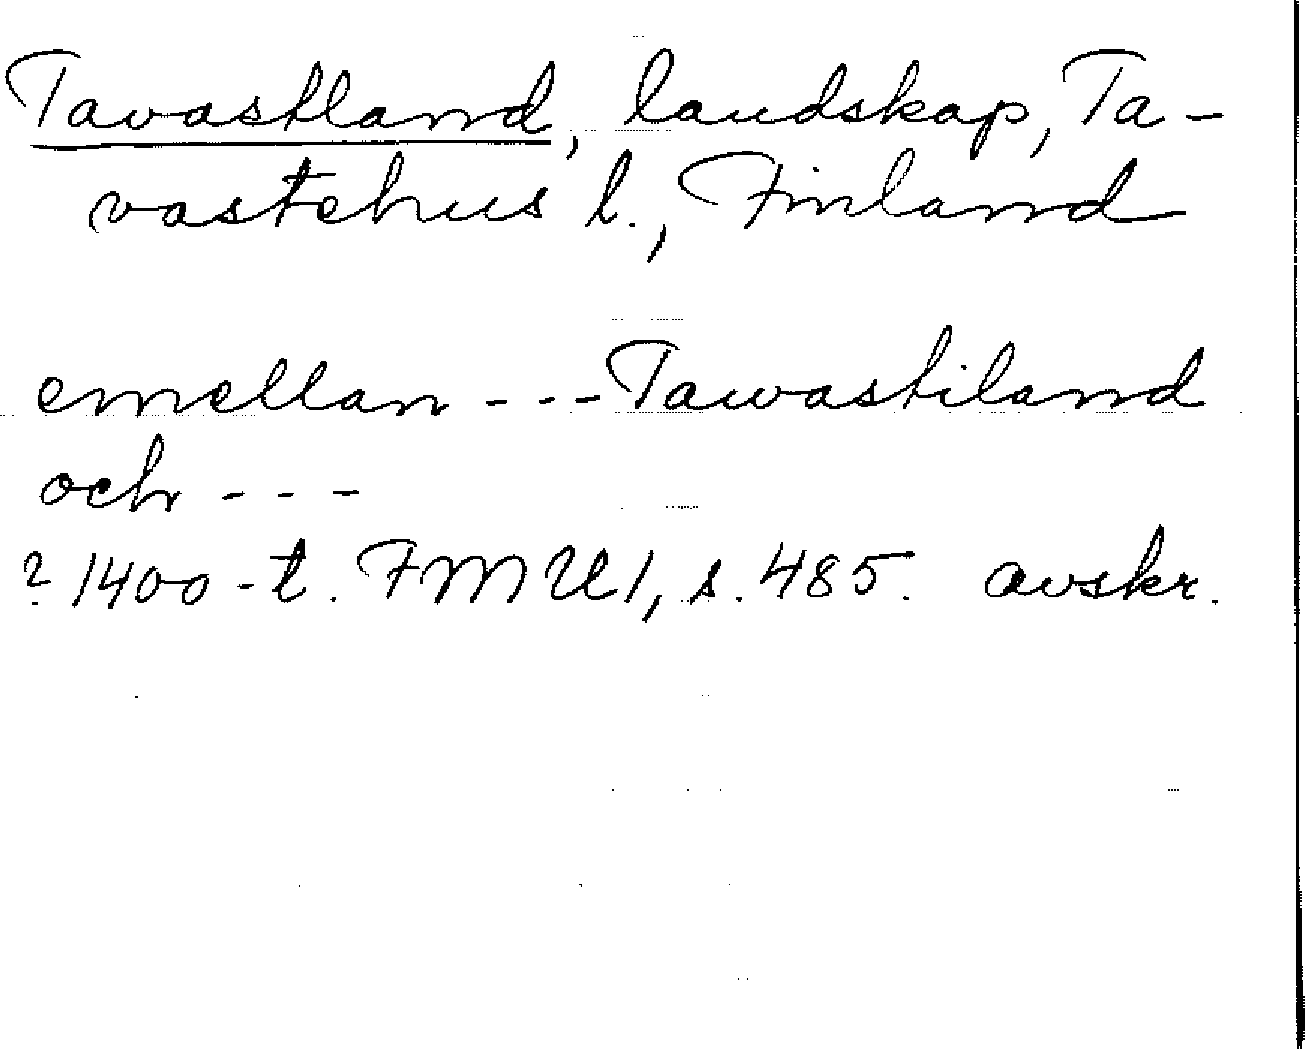 Tavastland, landskap, Ta-
vastehus l., Finland
emellan --- Tawastiland
och ---
? 1400-t. FMU 1, s. 485. avskr.